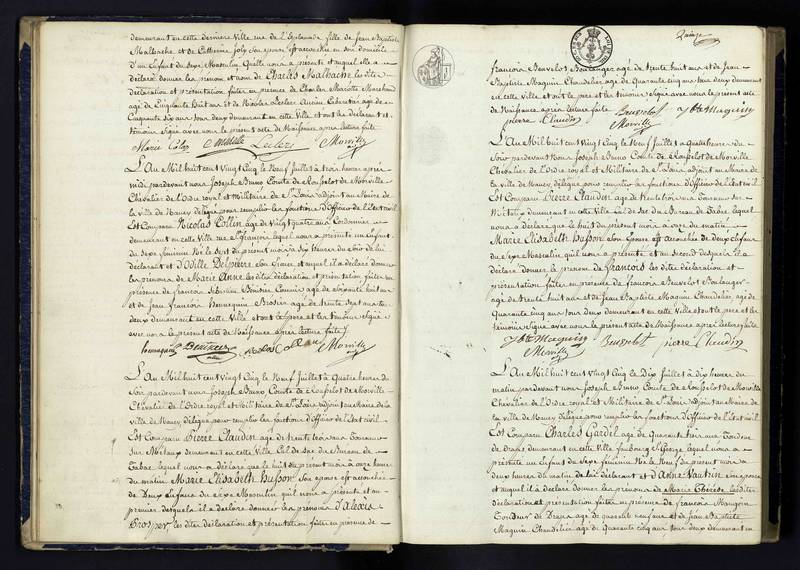 demeurant en cette derniere Ville rue de l'Esplanade fille de Jean Baptiste
Malhache et de Catherine Joly son epouse est accouchée en son domicile
d'un Enfant du Sexe Masculin Quelle nous a présenté et auquel elle a
déclaré donner les prénom et nom de Charles Malhache les dites
déclaration et présentation faites en présence de Charles Marotte Marchand
agé de Cinquante huit ans et de Nicolas Leclerc Ancien Cabaretier agé de
Cinquante six ans tous deux demeurant en cette Ville et ont les déclarant et
témoins signé avec nous le présent acte de Naissance après lecture faite
Marie Colas Marotte Leclerc Morville
L'An Mil huit cent Vingt Cinq le Neuf Juillet à trois heures après
midi pardevant nous Joseph Bruno Comte de Rousselot de Morville
Chevalier de l'Ordre royal et Militaire de St Louis adjoint au Maire de
la ville de Nancy délégué pour remplir les fonctions d'Officier de l'Etat civil
Est Comparu Nicolas Collin agé de Vingt quatre ans Cordonnier
demeurant en cette Ville rue St françois lequel nous a présenté un Enfant
du Sexe féminin Né le Sept du présent mois à Six heures du Soir de lui
déclarant et d'Odille Delpierre son Epouse et auquel il a déclaré donner
les prénoms de Marie Anne les dites déclaration et présentation faites en
présence de françois Sébastien Bénédic Cannier agé de soixante huit ans
et de Jean françois Hennequin Brosier agé de trente sept ans tous
deux demeurant en cette Ville et ont les père et les témoins signé
avec nous le présent acte de Naissance après lecture faite
hennequin Benedic Nicolas Collin Morville
L'An Mil huit cent Vingt Cinq le Neuf Juillet à Quatre heures du
Soir pardevant nous Joseph Bruno Comte de Rousselot de Morville
Chevalier de l'Ordre royal et Militaire de St Louis adjoint au Maire de la
ville de Nancy délégué pour remplir les fonctions d'Officier de l'Etat civil
Est Comparu Pierre Claudin agé de trente trois ans Tourneur
Sur Métaux demeurant en cette Ville Cul de Sac du Bureau de
Tabac lequel nous a déclaré que le huit du présent mois à onze heures
du matin Marie Elisabeth Husson Son épouse est accouchée
de Deux Enfans du Sexe Masculin quil nous a présenté et au
premier desquels il a déclaré donner les prénoms d'Alexis
Prosper les dites déclaration et présentation faites en présence de
Quinze
françois Beuvelot Boulanger agé de trente huit ans et de Jean
Baptiste Maquin Chandelier agé de Quarante cinq ans tous deux demeurant
en cette Ville et ont les père et les témoins Signé avec nous le présent acte
de Naissance après lecture faite Beuvelot JBte Maquin
pierre Claudin Morville
L'An Mil huit cent Vingt Cinq le Neuf Juillet à Quatre heures du
Soir pardevant nous Joseph Bruno Comte de Rousselot de Morville
Chevalier de l'Ordre royal et Militaire de St Louis adjoint au Maire de
la ville de Nancy délégué pour remplir les fonctions d'Officier de l'Etat civil
Est Comparu Pierre Claudin agé de trente trois ans Tourneur sur
Métaux demeurant en cette Ville Cul de Sac du Bureau de Tabac lequel
nous a déclaré que le huit du présent mois à onze du matin
Marie Elisabeth Husson Son Epouse est accouchée de deux Enfans
du Sexe Masculin quil nous a présenté et au Second desquels il a
déclaré donner le prénom de francois les dites déclaration et
présentation faites en présence de françois Beuvelot Boulanger
agé de trente huit ans et de Jean Baptiste Maquin Chandelier agé de
Quarante cinq ans tous deux demeurant en cette Ville et ont le père et les
témoins Signé avec nous le présent acte de Naissance après lecture faite
JBte Maquin Beuvelot pierre Claudin
Morville
L'An Mil huit cent Vingt Cinq le Dix Juillet à Dix heures du
matin pardevant nous Joseph Bruno Comte de Rousselot de Morville
Chevalier de l'Ordre royal et Militaire de St Louis adjoint au Maire de
la ville de Nancy délégué pour remplir les fonctions d'Officier de l'Etat civil
Est Comparu Charles Gardel agé de Quarante trois ans Tondeur
de Draps demeurant en cette Ville faubourg St George lequel nous a
présenté un Enfant du Sexe féminin Né le Neuf du présent mois à
deux heures du matin de lui déclarant et d'Anne Vautrin son épouse
et auquel il a déclaré donner les prénoms de Marie Thérèse les dites
déclaration et présentation faites en présence de françois Mangin
Tondeur de Draps agé de quarante neuf ans et de Jean Baptiste
Maquin Chandelier agé de Quarante cinq ans tous deux demeurant en